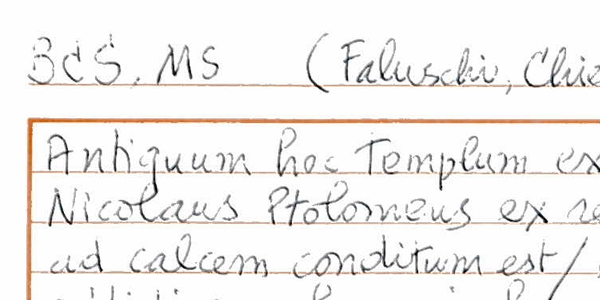 BCS, MS (Faluschi, Chie
Antiquum hoc Templum ex
Nicolaus Ptolomeus ex re
ad calcem conditum est/